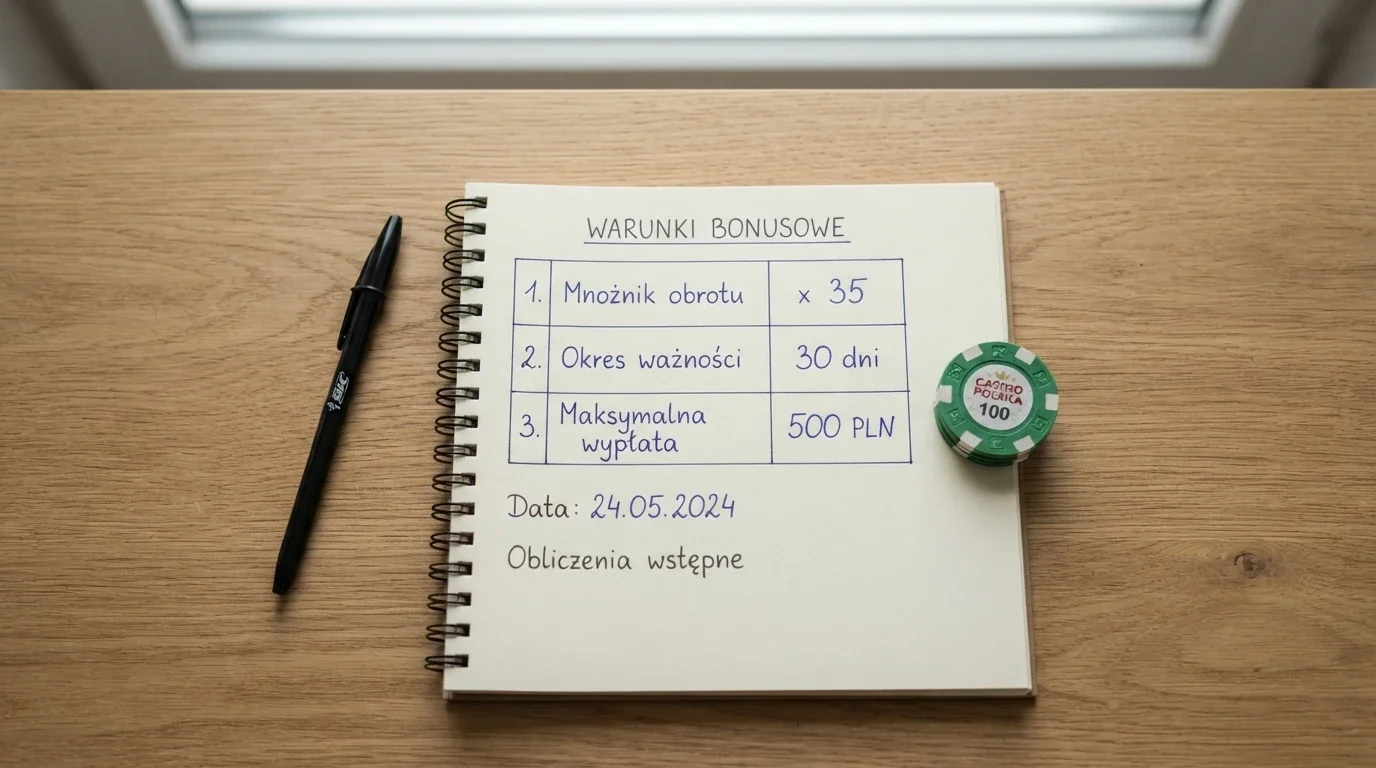 WARUNKI BONUSOWE
1. Mnożnik obrotu × 35
2. Okres ważności 30 dni
3. Maksymalna wypłata 500 PLN
Data: 24.05.2024
Obliczenia wstępne
100